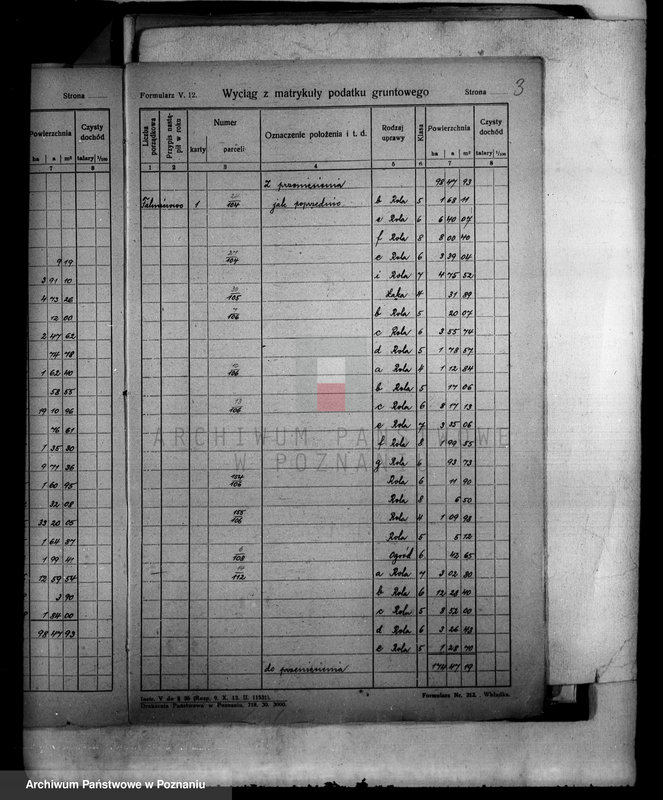 Strona
Powierzchnia
Czysty dochód
ha a m² talary 1/100
7 8
9 19
3 91 10
4 73 26
12 00
2 47 62
74 78
1 62 40
58 55
19 10 96
76 61
1 35 30
9 71 36
1 60 95
32 08
33 20 05
1 64 87
1 99 41
12 59 54
3 90
1 84 00
98 47 93
Formularz V. 12. Wyciąg z matrykuły podatku gruntowego Strona 3
Liczba porządkowa
Przypis nastąpił w roku
Numer
karty parceli
Oznaczenie położenia i t. d.
Rodzaj uprawy
Klasa
Powierzchnia
Czysty dochód
ha a m² talary 1/100
1 2 3 4 5 6 7 8
Z przeniesienia 98 47 93
1 104 jak poprzednio b Rola 5 1 68 11
e Rola 6 6 40 07
f Rola 8 8 00 40
27/104 e Rola 6 3 39 04
i Rola 7 4 75 52
30/105 Łąka 4 31 89
7/106 b Rola 5 20 07
c Rola 6 3 55 74
d Rola 5 1 78 57
10/106 a Rola 4 1 12 84
b Rola 5 17 06
13/106 c Rola 6 8 17 13
e Rola 7 3 35 06
f Rola 8 1 99 55
g Rola 6 93 73
154/106 Rola 6 11 90
Rola 8 6 50
155/106 Rola 4 1 09 98
Rola 5 5 12
6/108 Ogród 6 42 65
14/112 a Rola 7 3 02 80
b Rola 6 12 28 40
c Rola 5 8 52 00
d Rola 6 3 26 43
e Rola 5 1 28 70
do przeniesienia 174 47 19
Instr. V do § 36 (Rozp. 9. X. 13. II. 11531).
Drukarnia Państwowa w Poznaniu. 718. 30. 3000.
Formularz Nr. 212. Wkładka.
ARCHIWUM PAŃSTWOWE
W POZNANIU
Archiwum Państwowe w Poznaniu